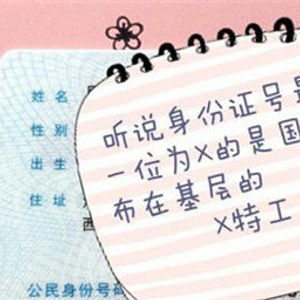 姓名
性别
出生
住址
西
公民身份号码
听说身份证号是
一位为X的是国
布在基层的
X特工